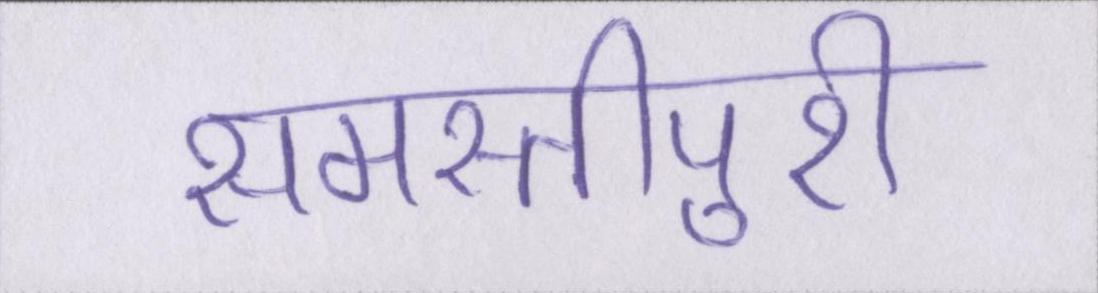 समस्तीपुरी